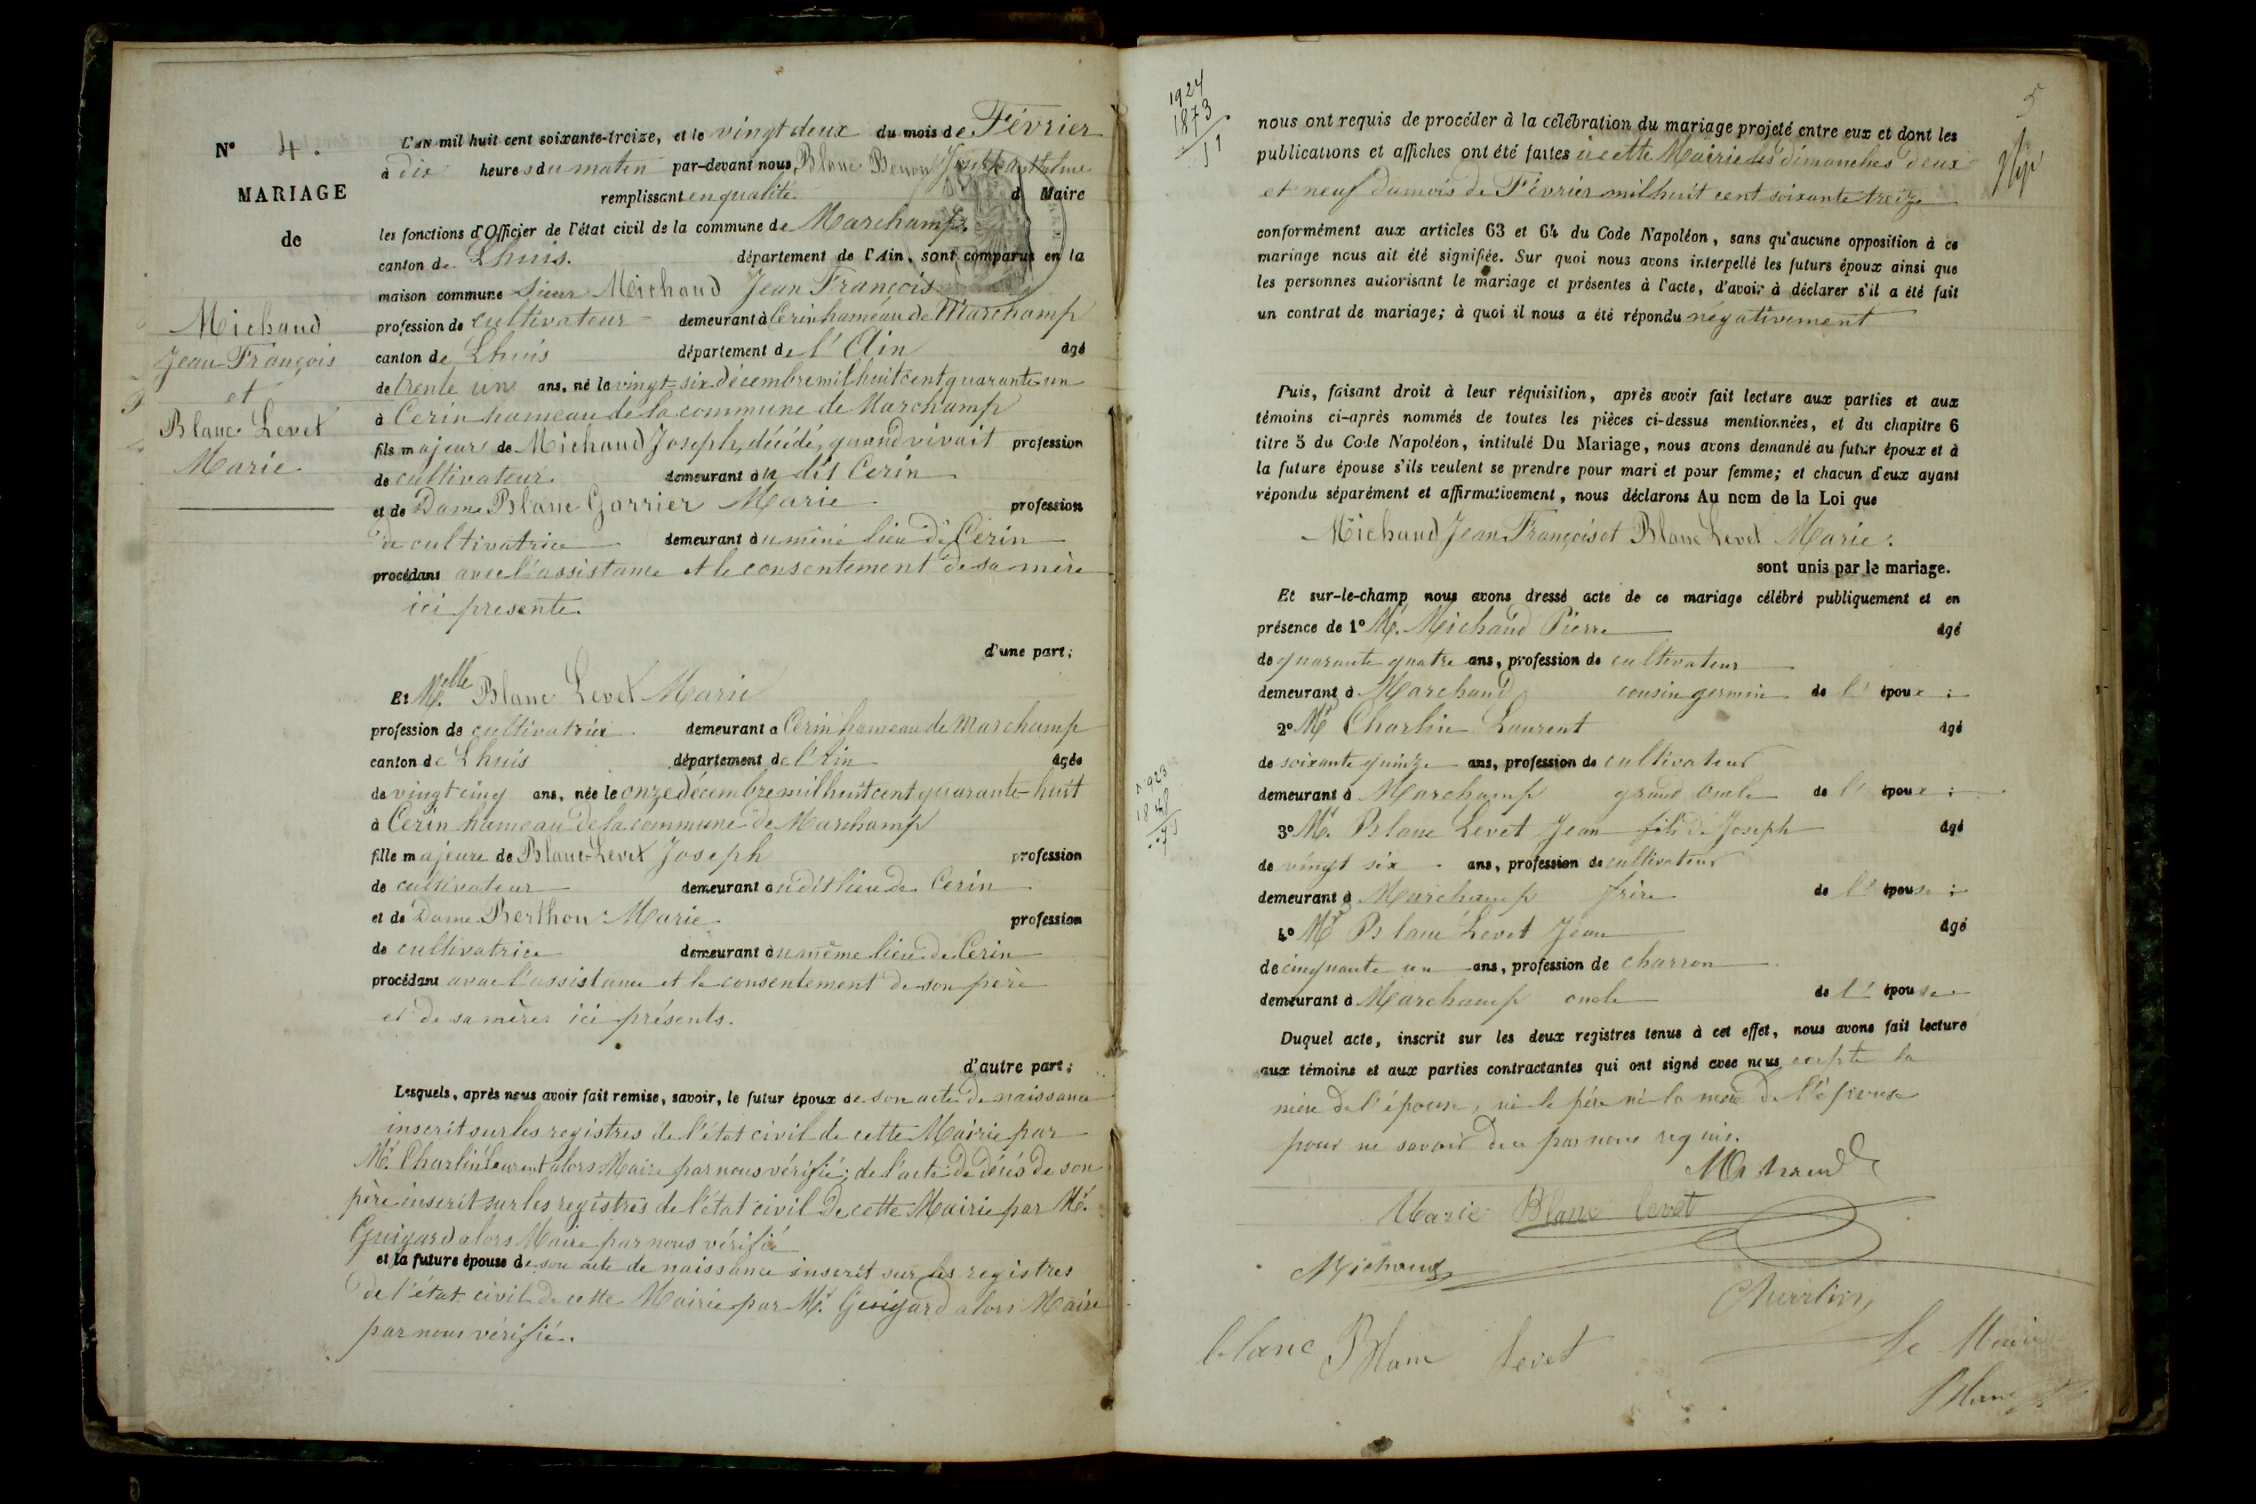 N° 4.
MARIAGE
de
Michaud
Jean François
et
Blanc Levet
Marie
L'AN mil huit cent soixante-treize, et le vingt deux du mois de Février
à dix heures du matin par-devant nous, Blanc Benon
remplissant en qualité d Maire
les fonctions d'Officier de l'état civil de la commune de Marchamp,
canton de Lhuis. département de l'Ain, sont comparus en la
maison commune Sieur Michaud Jean François
profession de cultivateur demeurant à Cerin hameau de Marchamp
canton de Lhuis département de l'Ain âgé
de trente un ans, né le vingt-six décembre mil huit cent quarante un
à Cerin hameau de la commune de Marchamp
fils majeur de Michaud Joseph, décédé, quand vivait profession
de cultivateur demeurant à dit Cerin
et de Dame Blanc Garrier Marie profession
de cultivatrice demeurant au même lieu de Cerin
procédant avec l'assistance et le consentement de sa mère
ici présente.
d'une part;
Et Melle Blanc Levet Marie
profession de cultivatrice demeurant à Cerin hameau de Marchamp
canton de Lhuis département de l'Ain âgée
de vingt cinq ans, née le onze décembre mil huit cent quarante-huit
à Cerin hameau de la commune de Marchamp
fille majeure de Blanc-Levet Joseph profession
de cultivateur demeurant au dit lieu de Cerin
et de Dame Berthon Marie profession
de cultivatrice demeurant au même lieu de Cerin
procédant avec l'assistance et le consentement de son père
et de sa mère ici présents.
d'autre part;
Lesquels, après nous avoir fait remise, savoir, le futur époux de son acte de naissance
inscrit sur les registres de l'état civil de cette Mairie par
Mr. Charlin Laurent alors Maire par nous vérifié; de l'acte de décés de son
père inscrit sur les registres de l'état civil de cette Mairie par Mr.
Guigard alors Maire par nous vérifié
et la future épouse de son acte de naissance inscrit sur les registres
de l'état civil de cette Mairie par Mr. Guigard alors Maire
par nous vérifié.
5
1924
1873
51
nous ont requis de procéder à la célébration du mariage projeté entre eux et dont les
publications et affiches ont été faites à cette Mairie les dimanches deux
et neuf du mois de Février mil huit cent soixante treize
conformément aux articles 63 et 64 du Code Napoléon, sans qu'aucune opposition à ce
mariage nous ait été signifiée. Sur quoi nous avons interpellé les futurs époux ainsi que
les personnes autorisant le mariage et présentes à l'acte, d'avoir à déclarer s'il a été fait
un contrat de mariage; à quoi il nous a été répondu négativement
Puis, faisant droit à leur réquisition, après avoir fait lecture aux parties et aux
témoins ci-après nommés de toutes les pièces ci-dessus mentionnées, et du chapitre 6
titre 5 du Code Napoléon, intitulé Du Mariage, nous avons demandé au futur époux et à
la future épouse s'ils veulent se prendre pour mari et pour femme; et chacun d'eux ayant
répondu séparément et affirmativement, nous déclarons Au nom de la Loi que
Michaud Jean François et Blanc Levet Marie.
sont unis par le mariage.
Et sur-le-champ nous avons dressé acte de ce mariage célébré publiquement et en
présence de 1° Mr. Michaud Pierre âgé
de quarante quatre ans, profession de cultivateur
demeurant à Marchand cousin germin de l' époux ;
2° Mr Charlin Laurent âgé
de soixante quinze ans, profession de cultivateur
demeurant à Marchamp grand oncle de l' époux ;
1923
1848
75
3° Mr. Blanc Levet Jean fils de Joseph âgé
de vingt six ans, profession de cultivateur
demeurant à Marchamp frère de l' épouse ;
4° Mr Blanc Levet Jean âgé
de cinquante un ans, profession de charron
demeurant à Marchamp oncle de l' épouse
Duquel acte, inscrit sur les deux registres tenus à cet effet, nous avons fait lecture
aux témoins et aux parties contractantes qui ont signé avec nous, la
mère de l'époux, ni le père ni la mère de l'épouse
pour ne savoir de ce par nous requis.
Marie Blanc levet
Michaud
Charlin
blanc Blanc levet
Le Maire
Blanc